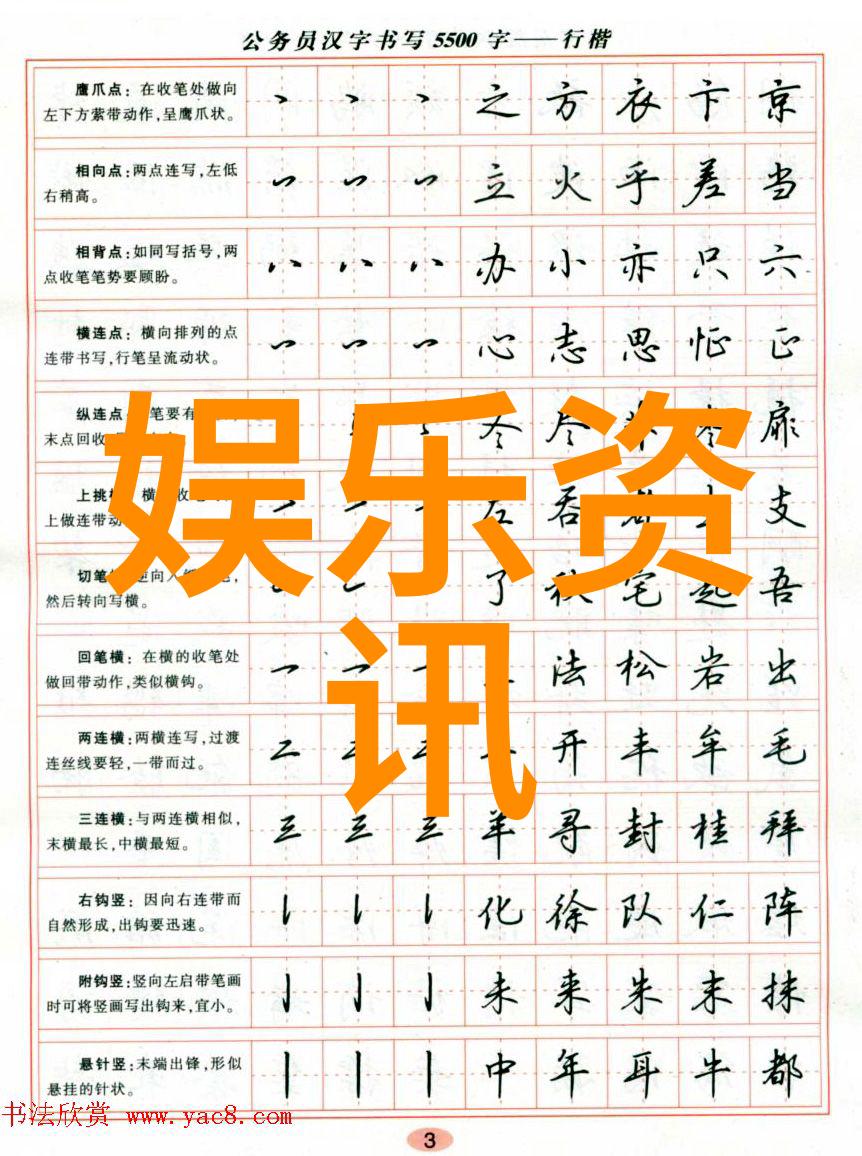 公务员汉字书写 5500 字——行楷
鹰爪点：在收笔处做向
左下方萦带动作，呈鹰爪状。
之 方 衣 卞 京
相向点：两点连写，左低
右稍高。
立 火 乎 差 当
相背点：如同写括号，两
点收笔笔势要顾盼。
办 小 亦 只 六
横连点：横向排列的点
连带书写，行笔呈流动状。
心 志 思 怔 正
纵连点
笔要有
末点回收
冬 尽 扉
上挑横 横 收
上做连带动
左 吞 支
切笔 逆向入
然后转向写横。
了 秋 宅 起 吾
回笔横：在横的收笔处
做回带动作，类似横钩。
法 松 岩 出
两连横：两横连写，过渡
连丝线要轻，一带而过。
开 丰 牟 毛
三连横：与两连横相似，
末横最长，中横最短。
羊 寻 封 桂 拜
右钩竖：因向右连带而
自然形成，出钩要迅速。
化 徐 队 仁 阵
附钩竖：竖向左启带笔画
时可将竖画写出钩来，宜小。
未 来 朱 末 抹
悬针竖：末端出锋，形似
悬挂的针状。
中 年 耳 牛 都
娱乐资
讯
书法欣赏 www.yac8.com
3